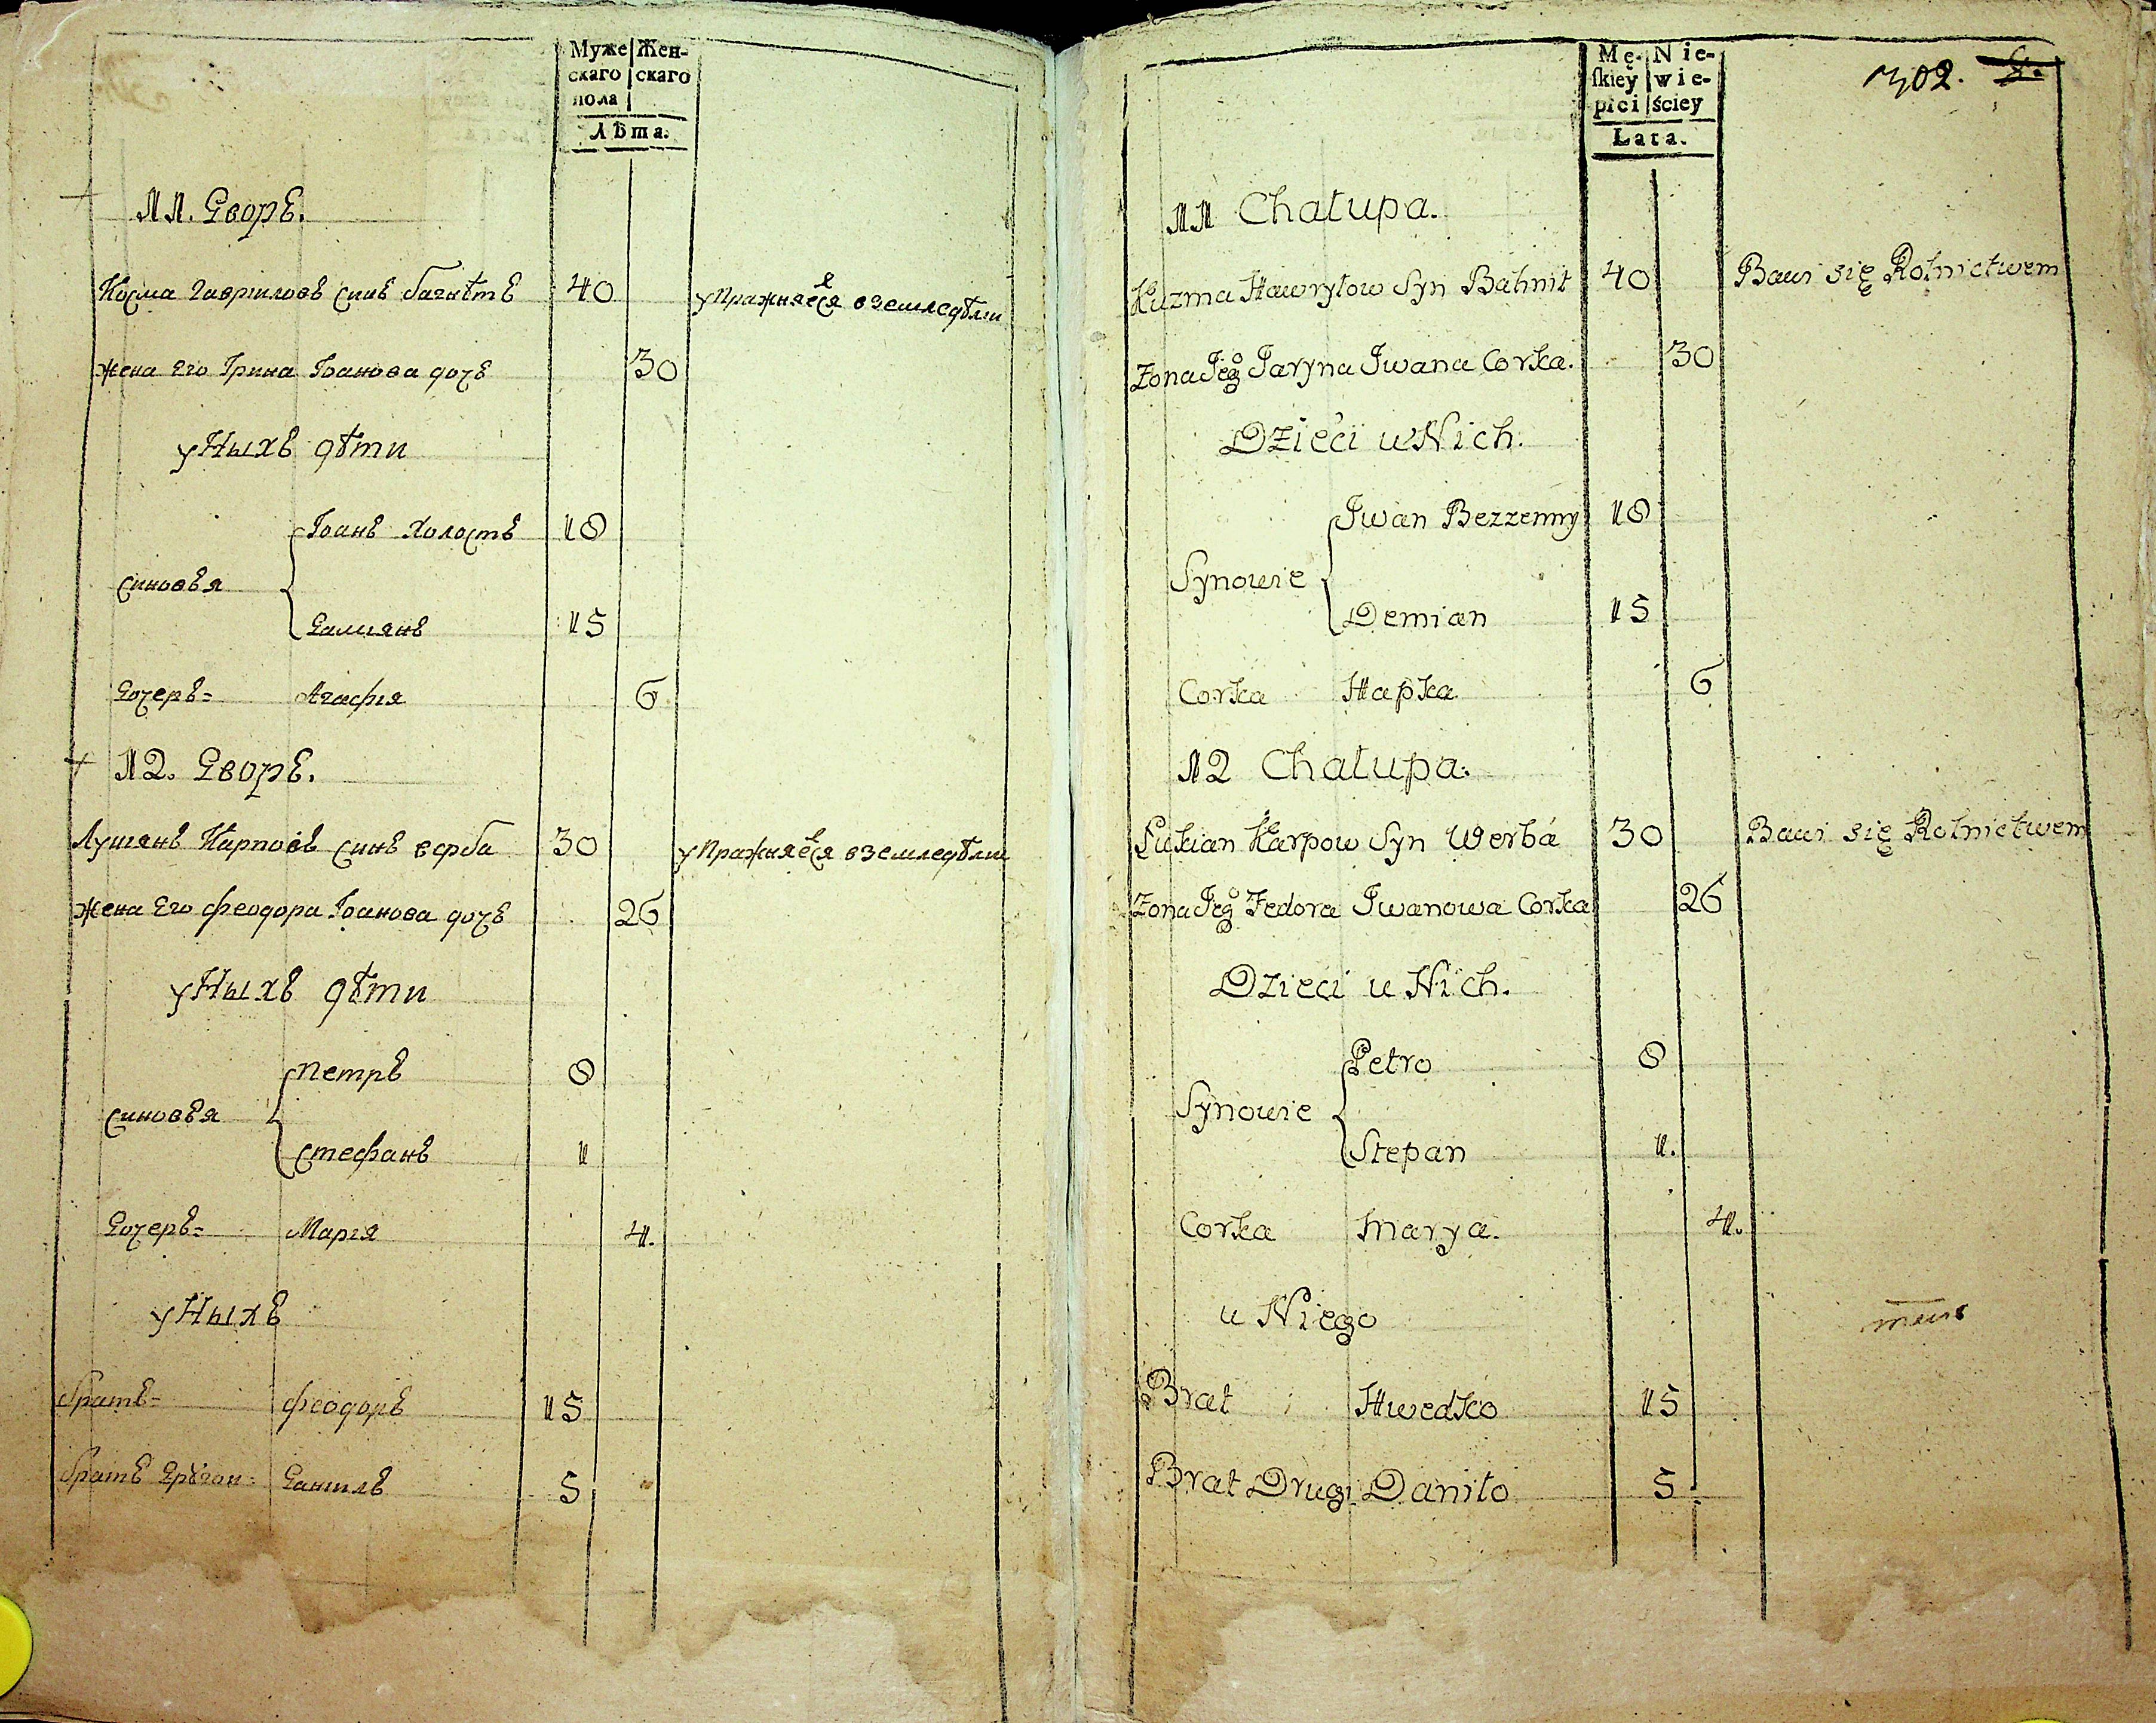 Муже Жен-
скаго скаго
пола
Лѣта.
11. Дворъ.
Косма Гавриловъ синъ багнѣтъ 40 упражняеся вземледѣлии
жена Его Ірина Іоанова дочъ 30
уНыхъ дѣти
Іоанъ Холостъ 18
синовъя
Дамиянъ 15
Дочеръ= Агафия 6
12. Дворъ.
Лукиянъ Карповъ синъ верба 30 упражняеся вземледѣлии
жена Его феодора Іоанова дочъ 26
уНыхъ дѣти
Петръ 8
синовъя
Стефанъ 1
Дочеръ= Мария 4.
уНыхъ
братъ= феодоръ 15
братъ Другои= Данилъ 5
1302. 8.
Mę- Nie-
skiey wie-
płci ściey
Lata.
11 Chałupa.
Kuzma Hawryłow Syn Bahnit 40 Bawi się Rolnictwem
Zona Jego Jaryna Iwana Corka. 30
Dzieci u Nich.
Iwan Bezzenny 18
Synowie
Demian 15
Corka Hapka 6
12 Chałupa.
Łukian Karpow Syn Werba 30 Bawi się Rolnictwem
Zona Jego Fedora Iwanowa Corka 26
Dzieci u Nich.
Petro 8
Synowie
Stepan 1.
Corka Marya. 4.
u Niego
Brat Hwedko 15
Brat Drugi Daniło 5